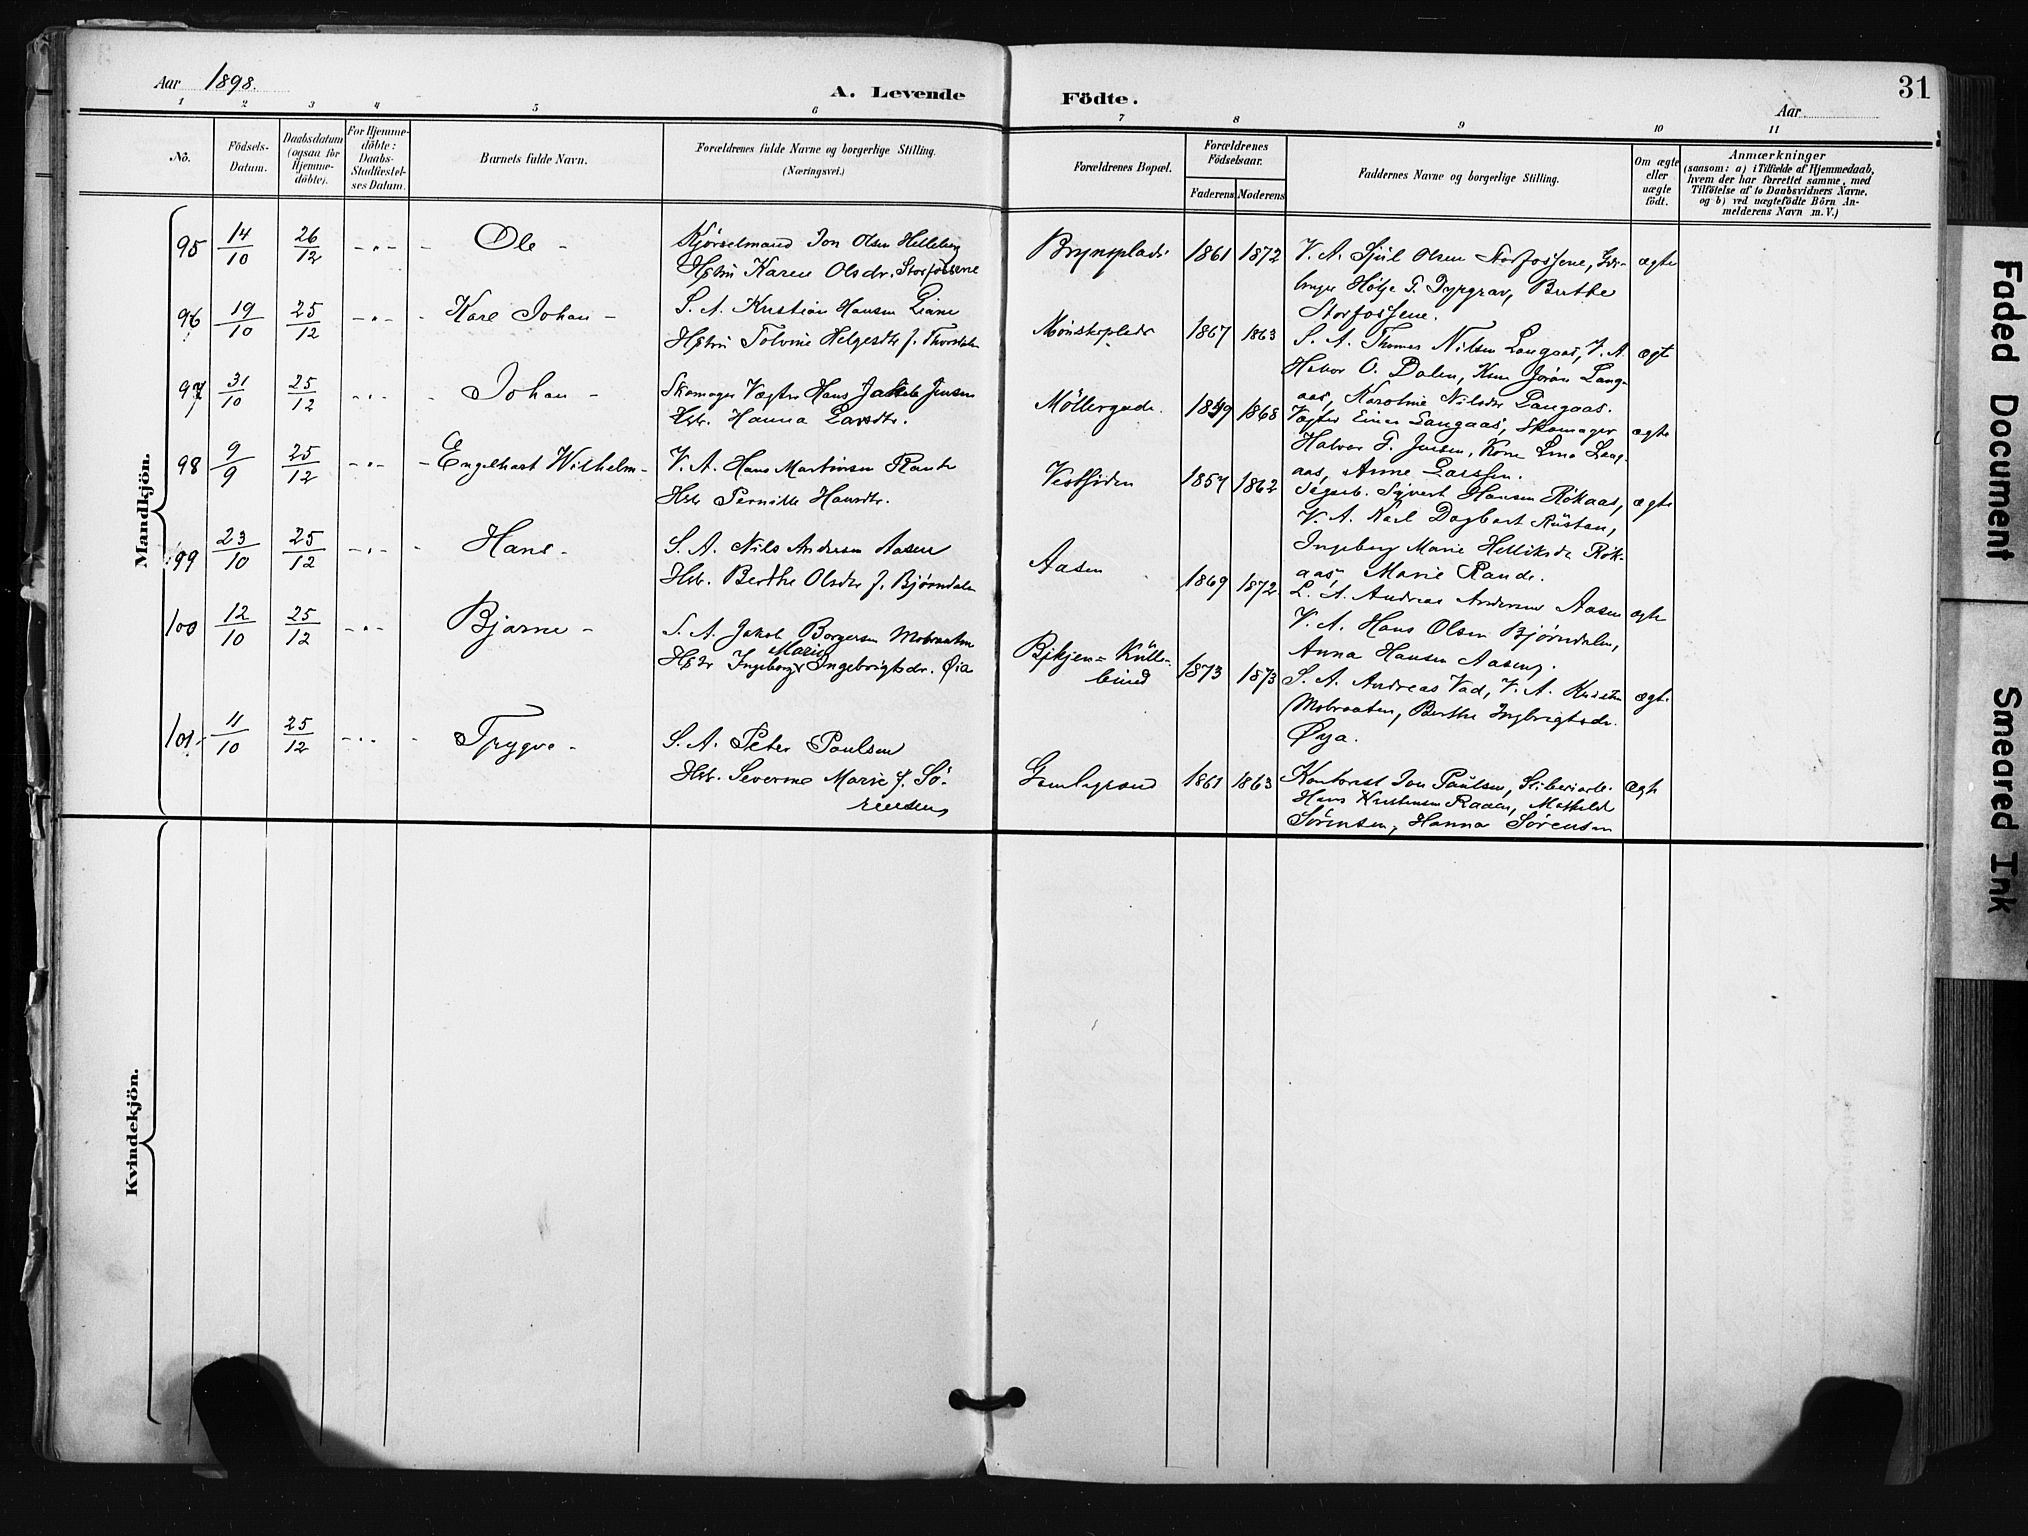 Aar 1898.
A. Levende Födte.
Aar
31
1 2 3 4 5 6 7 8 9 10 11
No.
Födsels-Datum.
Daabsdatum (ogsaa for Hjemme-döbte).
For Hjemme-döbte: Daabs-Stadfæstel-ses Datum.
Barnets fulde Navn.
Forældrenes fulde Navne og borgerlige Stilling. (Næringsvei.)
Forældrenes Bopæl.
Forældrenes Födselsaar.
Faderens Moderens
Faddernes Navne og borgerlige Stilling.
Om ægte eller uægte födt.
Anmærkninger
(saasom: a) i Tilfælde af Hjemmedaab,
hvem der har forrettet samme, med
Tilföielse af to Daabsvidners Navne.
og b) ved uægtefödte Börn An-
melderens Navn m. V.)
Mandkjön.
95 14/10 26/12 - " - Ole -
Kjørselmand Jon Olsen Helleberg
Hstru Karen Olsdr. Storfossene
Brynsplads 1861 1872
V. A. Sjul Olsen Storfossene,
Hølje T. Dyrgrav, Berthe
Storfossene.
ægte
96 19/10 25/12 - " - Karl Johan -
S. A. Kristian Hansen Liane
Hstru Tolvine Helgesdtr f. Thordalen
Mønsteplads 1867 1863
S. A. Thomas Nilsen Langaas, V. A.
Halvor O. Dalen, Kone Jorån Lang-
aas, Karoline Nilsdtr Langaas.
ægt
97 31/10 25/12 - " - Johan -
Skomager Vægter Hans Jakob Jensen
Hstr. Hanna Larsdtr.
Möllergade. 1849 1868
Vægter Einar Langaas, Skomager
Halvor F. Jensen, Kone Lina Lang-
aas, Anne Larssen.
ægte
98 9/9 25/12 - " - Engelhart Wilhelm -
V. A. Hans Martinsen Rande
Hstr Pernille Hansdtr.
Vestsiden 1857 1862
Sagarb. Syvert Hansen Rökaas,
V. A. Karl Dagbart Rustan,
Ingeborg Marie Helliksdr Rök-
aas, Marie Rande.
ægte
99 23/10 25/12 - " - Hans -
S. A. Nils Andersen Aasen
Hstr. Berthe Olsdtr f. Bjørndalen
Aasen 1869 1872
S. A. Andreas Andersen Aasen
V. A. Hans Olsen Bjørndalen,
Anna Hansen Aasen.
ægte
100 12/10 25/12 - " - Bjarne -
S. A. Jakob Borgersen Mobraaten
Hstr Ingeborg Marie Ingebrigtsdr. Øia
1873 1873
S. A. Andreas Vad, V. A. Kristen
Mobraaten, Berthe Ingbrigtsdr.
Øya.
ægte
101. 11/10 25/12 - " - Trygve -
S. A. Peter Paulsen
Hstr. Severine Marie f. Sö-
rensen
Gamlegrænd 1861 1863
Kontorist Jon Paulsen, Sliberiarb.
Hans Kristensen Raaen, Mathilde
Sørensen, Hanna Sørensen
ægte
Kvindekjön.
Faded Document
Smeared Ink